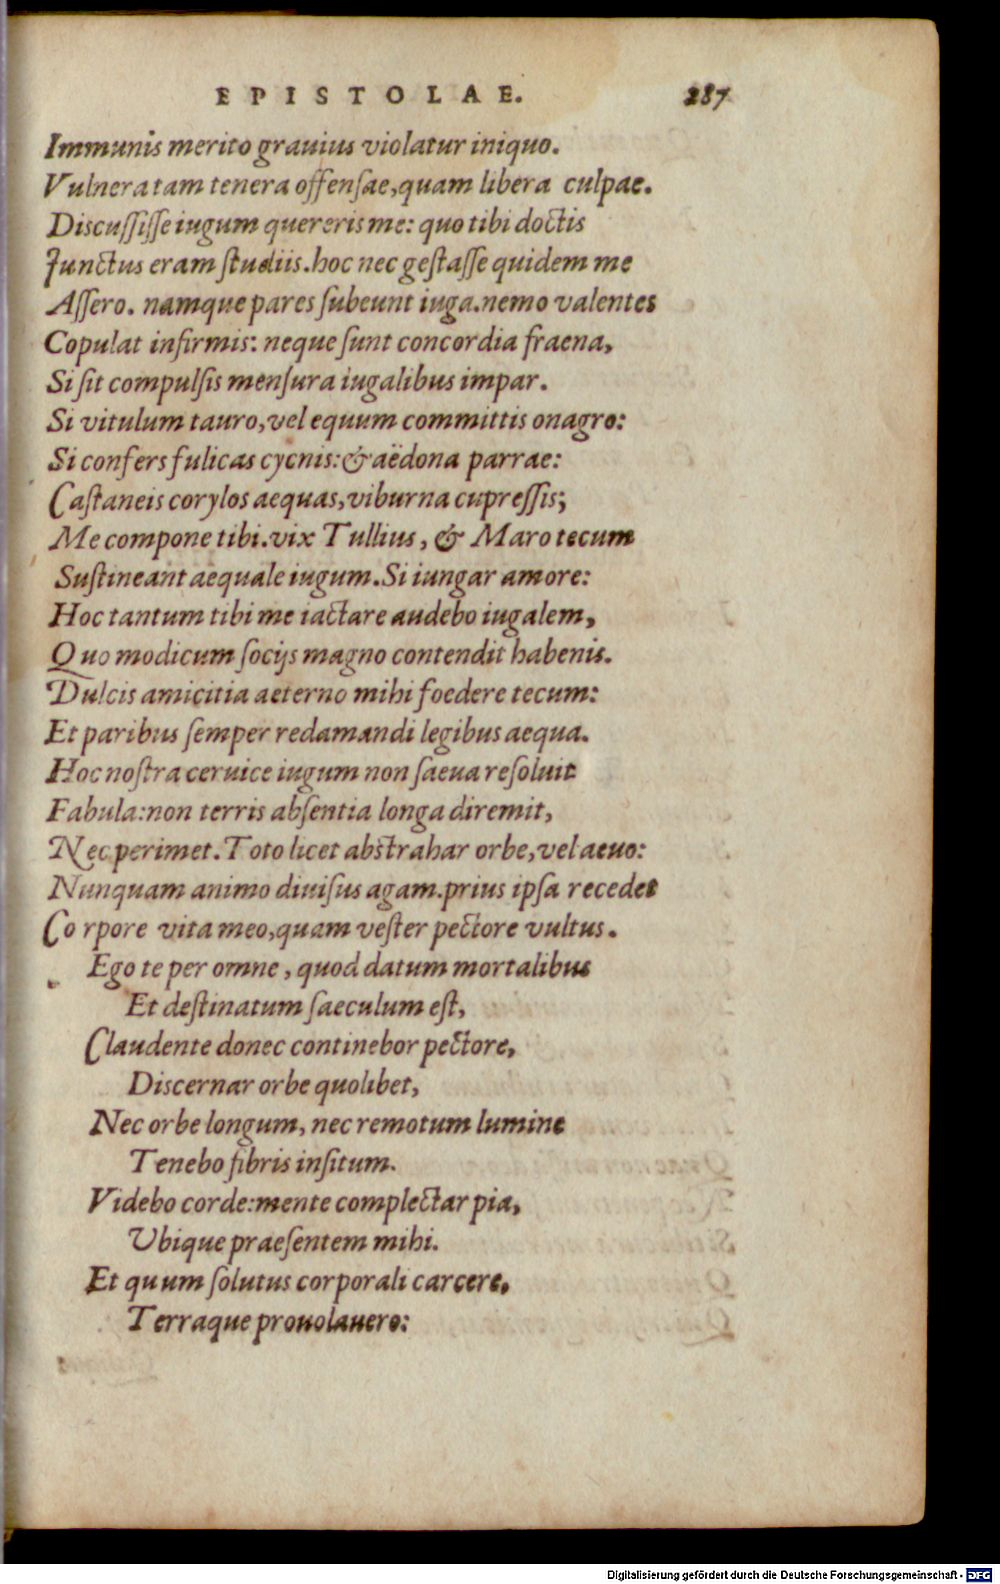 EPISTOLAE. 287
Immunis merito grauius violatur iniquo.
Vulnera tam tenera offensae, quam libera culpae.
Discussisse iugum quereris me: quo tibi doctis
Junctus eram studiis. hoc nec gestasse quidem me
Assero. namque pares subeunt iuga. nemo valentes
Copulat infirmis: neque sunt concordia fraena,
Si sit compulsis mensura iugalibus impar.
Si vitulum tauro, vel equum committis onagro:
Si confers fulicas cycnis: & aëdona parrae:
Castaneis corylos aequas, viburna cupressis;
Me compone tibi. vix Tullius, & Maro tecum
Sustineant aequale iugum. Si iungar amore:
Hoc tantum tibi me iactare audebo iugalem,
Quo modicum socijs magno contendit habenis.
Dulcis amicitia aeterno mihi foedere tecum:
Et paribus semper redamandi legibus aequa.
Hoc nostra ceruice iugum non saeua resoluit
Fabula: non terris absentia longa diremit,
Nec perimet. Toto licet abstrahar orbe, vel aeuo:
Nunquam animo diuisus agam. prius ipsa recedet
Co rpore vita meo, quam vester pectore vultus.
Ego te per omne, quod datum mortalibus
Et destinatum saeculum est,
Claudente donec continebor pectore,
Discernar orbe quolibet,
Nec orbe longum, nec remotum lumine
Tenebo fibris insitum.
Videbo corde: mente complectar pia,
Ubique praesentem mihi.
Et quum solutus corporali carcere,
Terraque prouolauero:
Digitalisierung gefördert durch die Deutsche Forschungsgemeinschaft - DFG